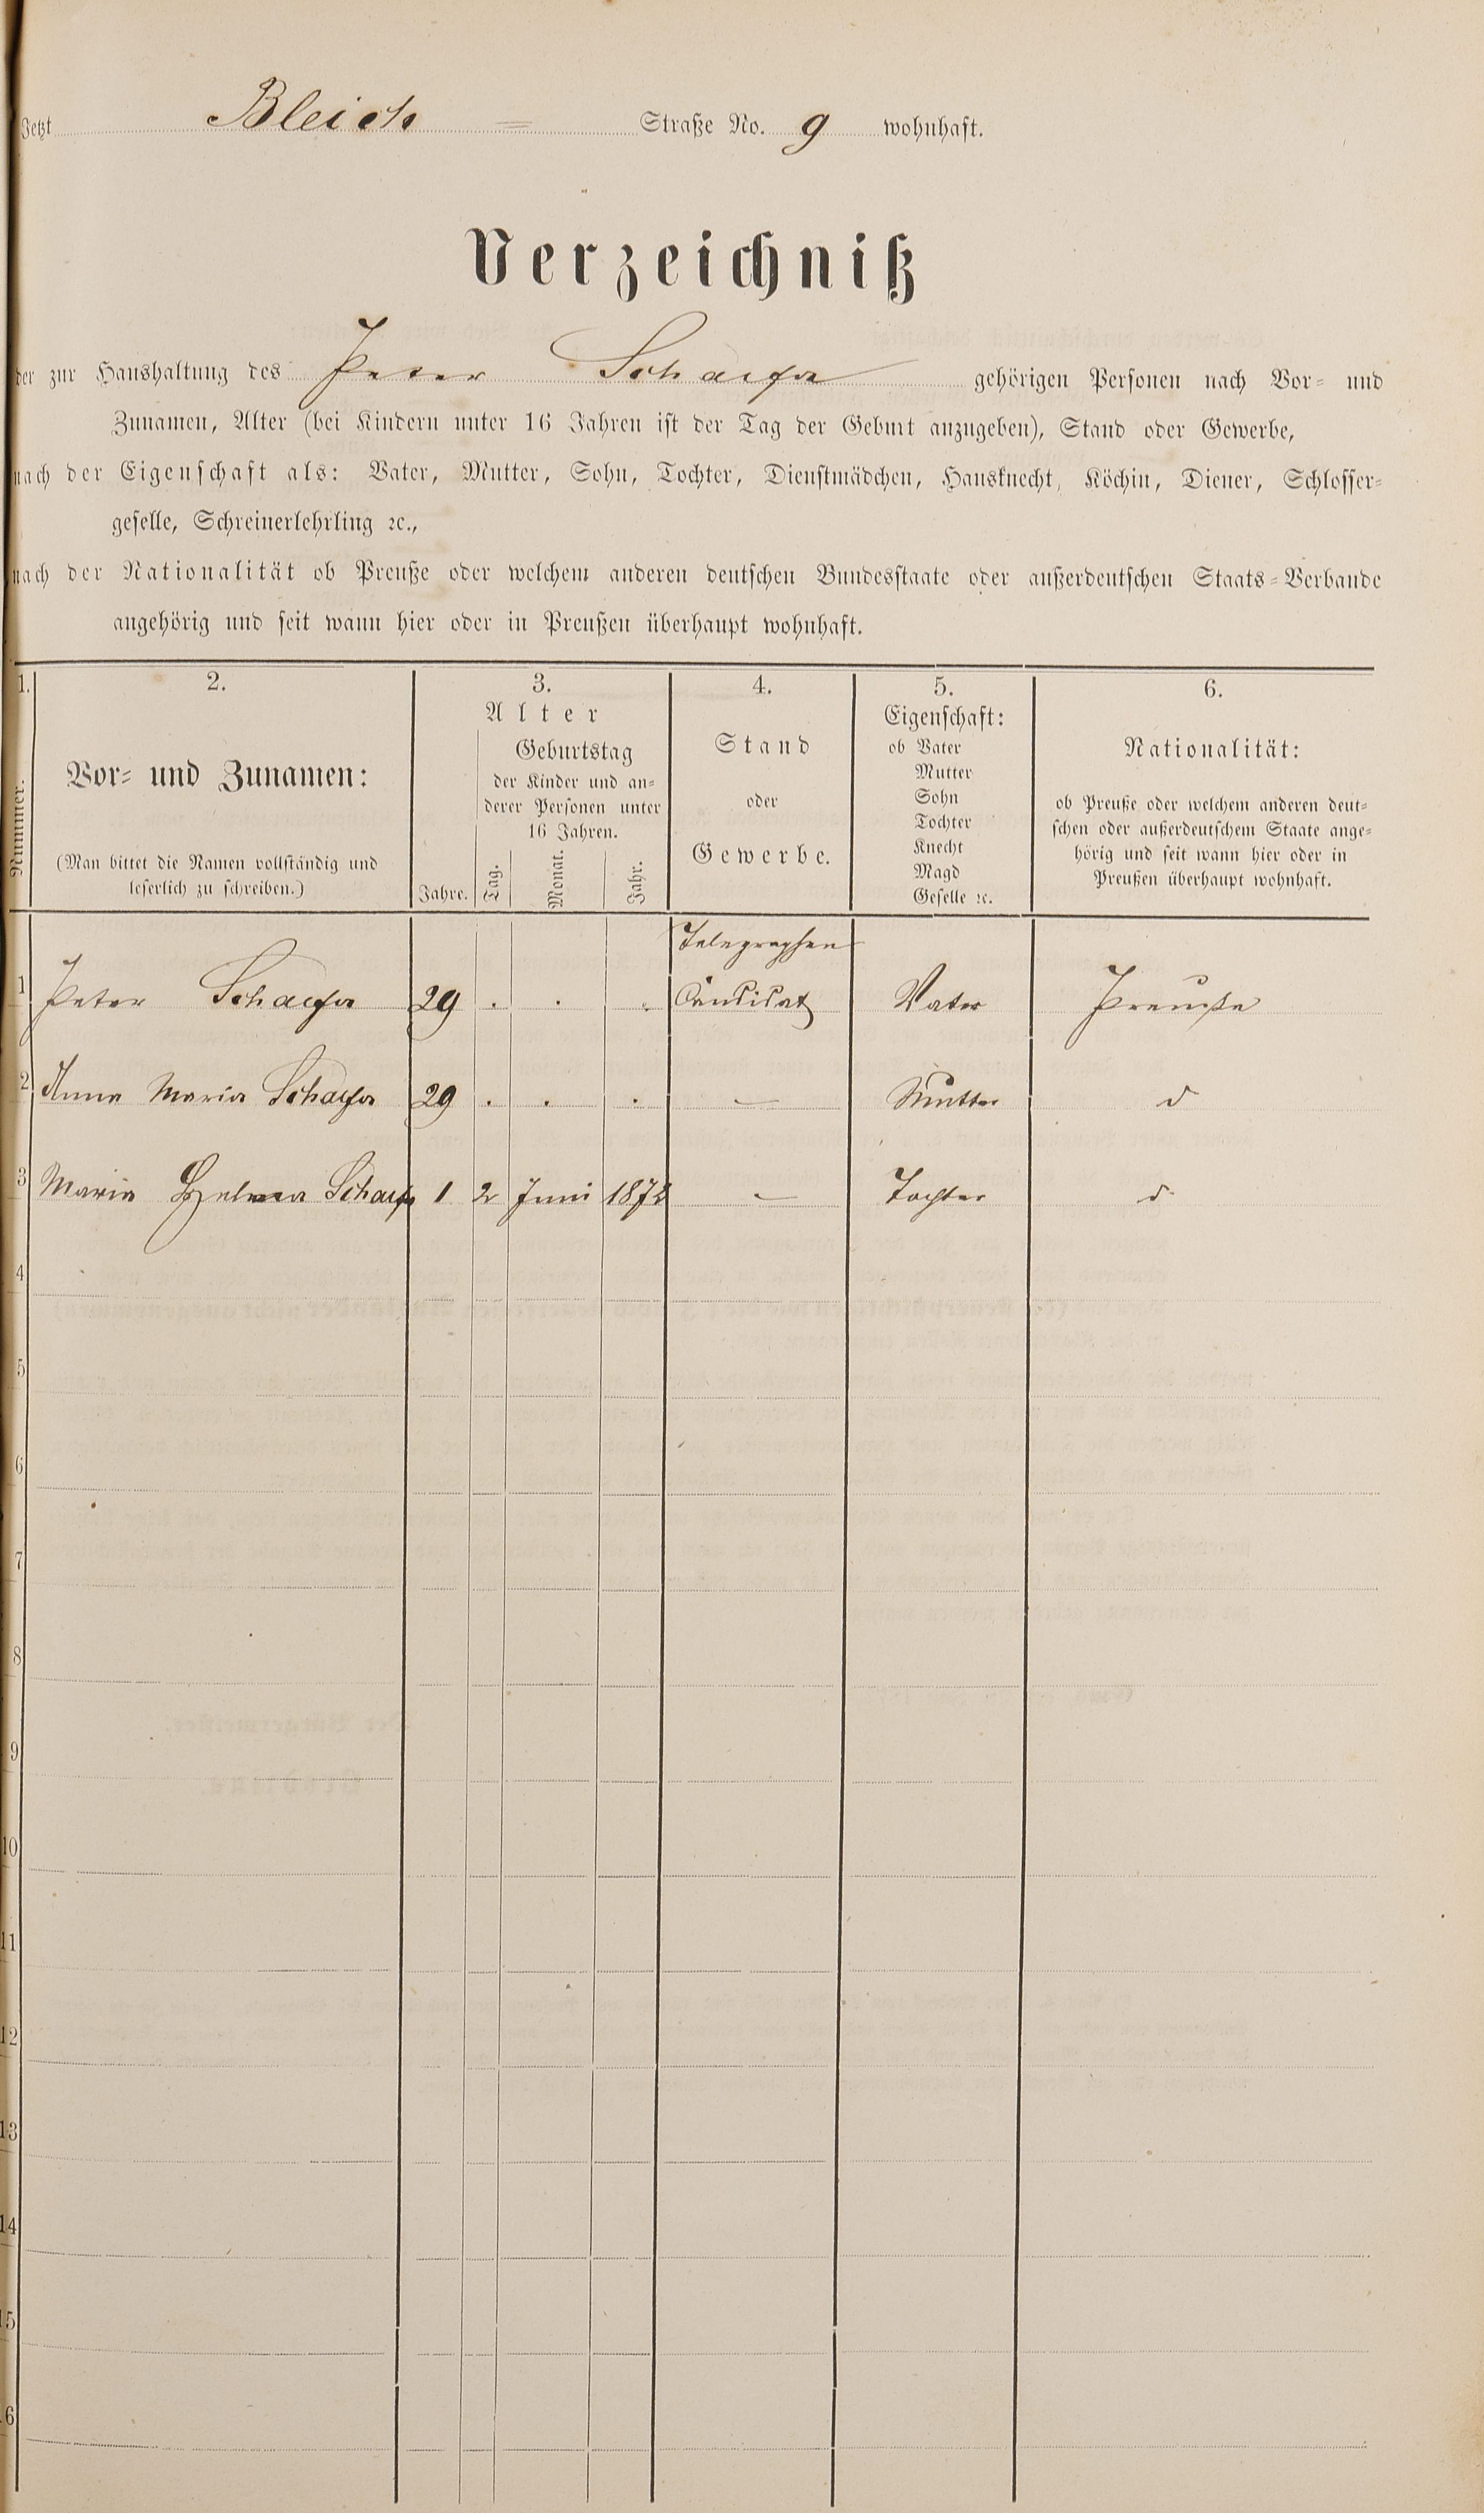 Jetzt Bleich = Straße No. 9 wohnhaft.
Verzeichniß
der zur Haushaltung des Peter Schaefer gehörigen Personen nach Vor- und
Zunamen, Alter (bei Kindern unter 16 Jahren ist der Tag der Geburt anzugeben), Stand oder Gewerbe,
nach der Eigenschaft als: Vater, Mutter, Sohn, Tochter, Dienstmädchen, Hausknecht, Köchin, Diener, Schlosser-
geselle, Schreinerlehrling ꝛc.,
nach der Nationalität ob Preuße oder welchem anderen deutschen Bundesstaate oder außerdeutschen Staats-Verbande
angehörig und seit wann hier oder in Preußen überhaupt wohnhaft.
1. 2. 3. 4. 5. 6.
Nummer.
Vor- und Zunamen:
(Man bittet die Namen vollständig und
leserlich zu schreiben.)
Alter
Jahre.
Geburtstag
der Kinder und an-
derer Personen unter
16 Jahren.
Tag. Monat. Jahr.
Stand
oder
Gewerbe.
Eigenschaft:
ob Vater
Mutter
Sohn
Tochter
Knecht
Magd
Geselle ꝛc.
Nationalität:
ob Preuße oder welchem anderen deut-
schen oder außerdeutschem Staate ange-
hörig und seit wann hier oder in
Preußen überhaupt wohnhaft.
Telegraphen
1 Peter Schaefer 29 . . . Candidat Vater Preuße
2 Anna Maria Schaefer 29 . . . — Mutter d
3 Maria Schaef 1 2 Juni — Tochter d
4
5
6
7
8
9
10
11
12
13
14
15
16